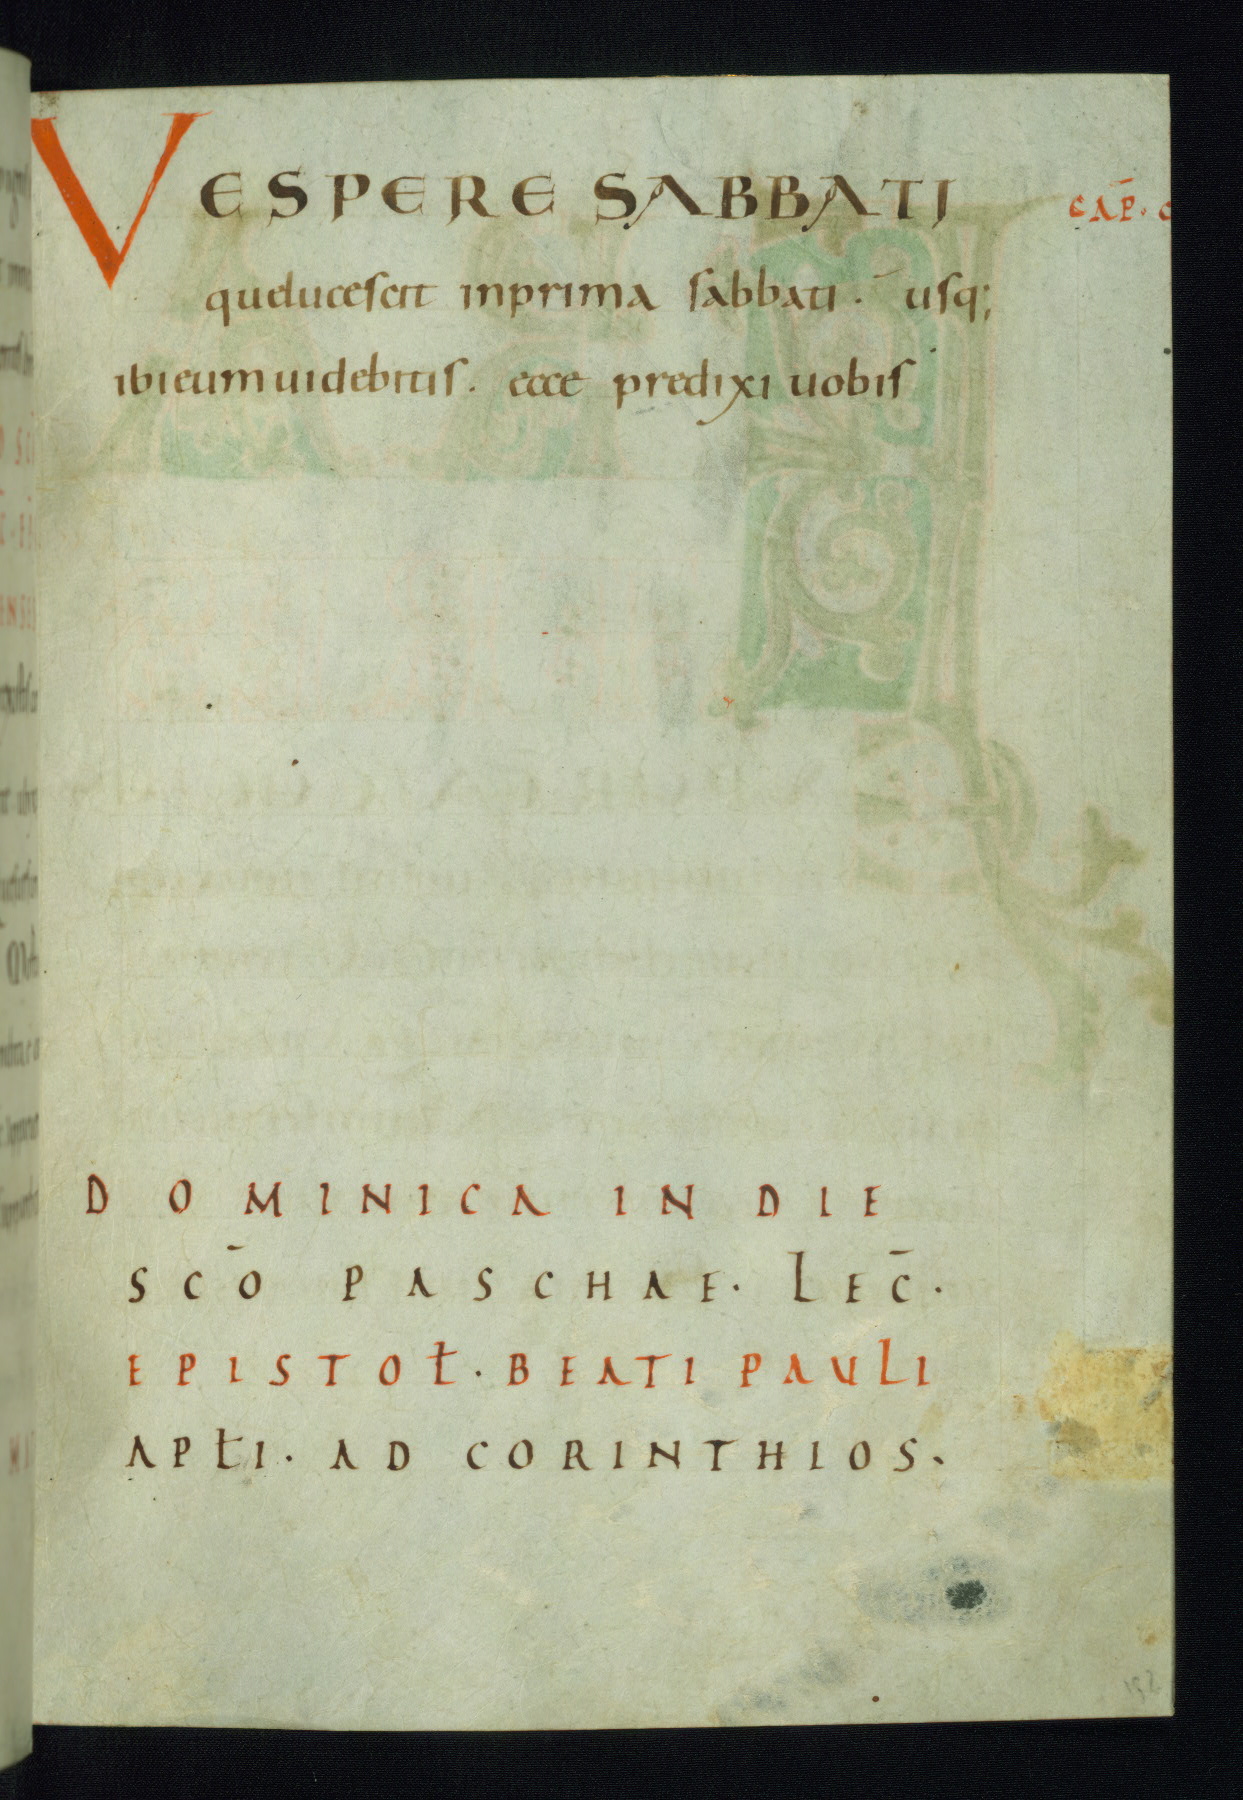 VESPERE SABBATI
CAP̄· C
quęlucescit inprima sabbati · usq;
ibi eum uidebitis. ecce predixi uobis
DOMINICA IN DIE
SCŌ PASCHAE· LEC̄·
EPISTOŁ·BEATI PAULI
APŁI· AD CORINTHIOS·